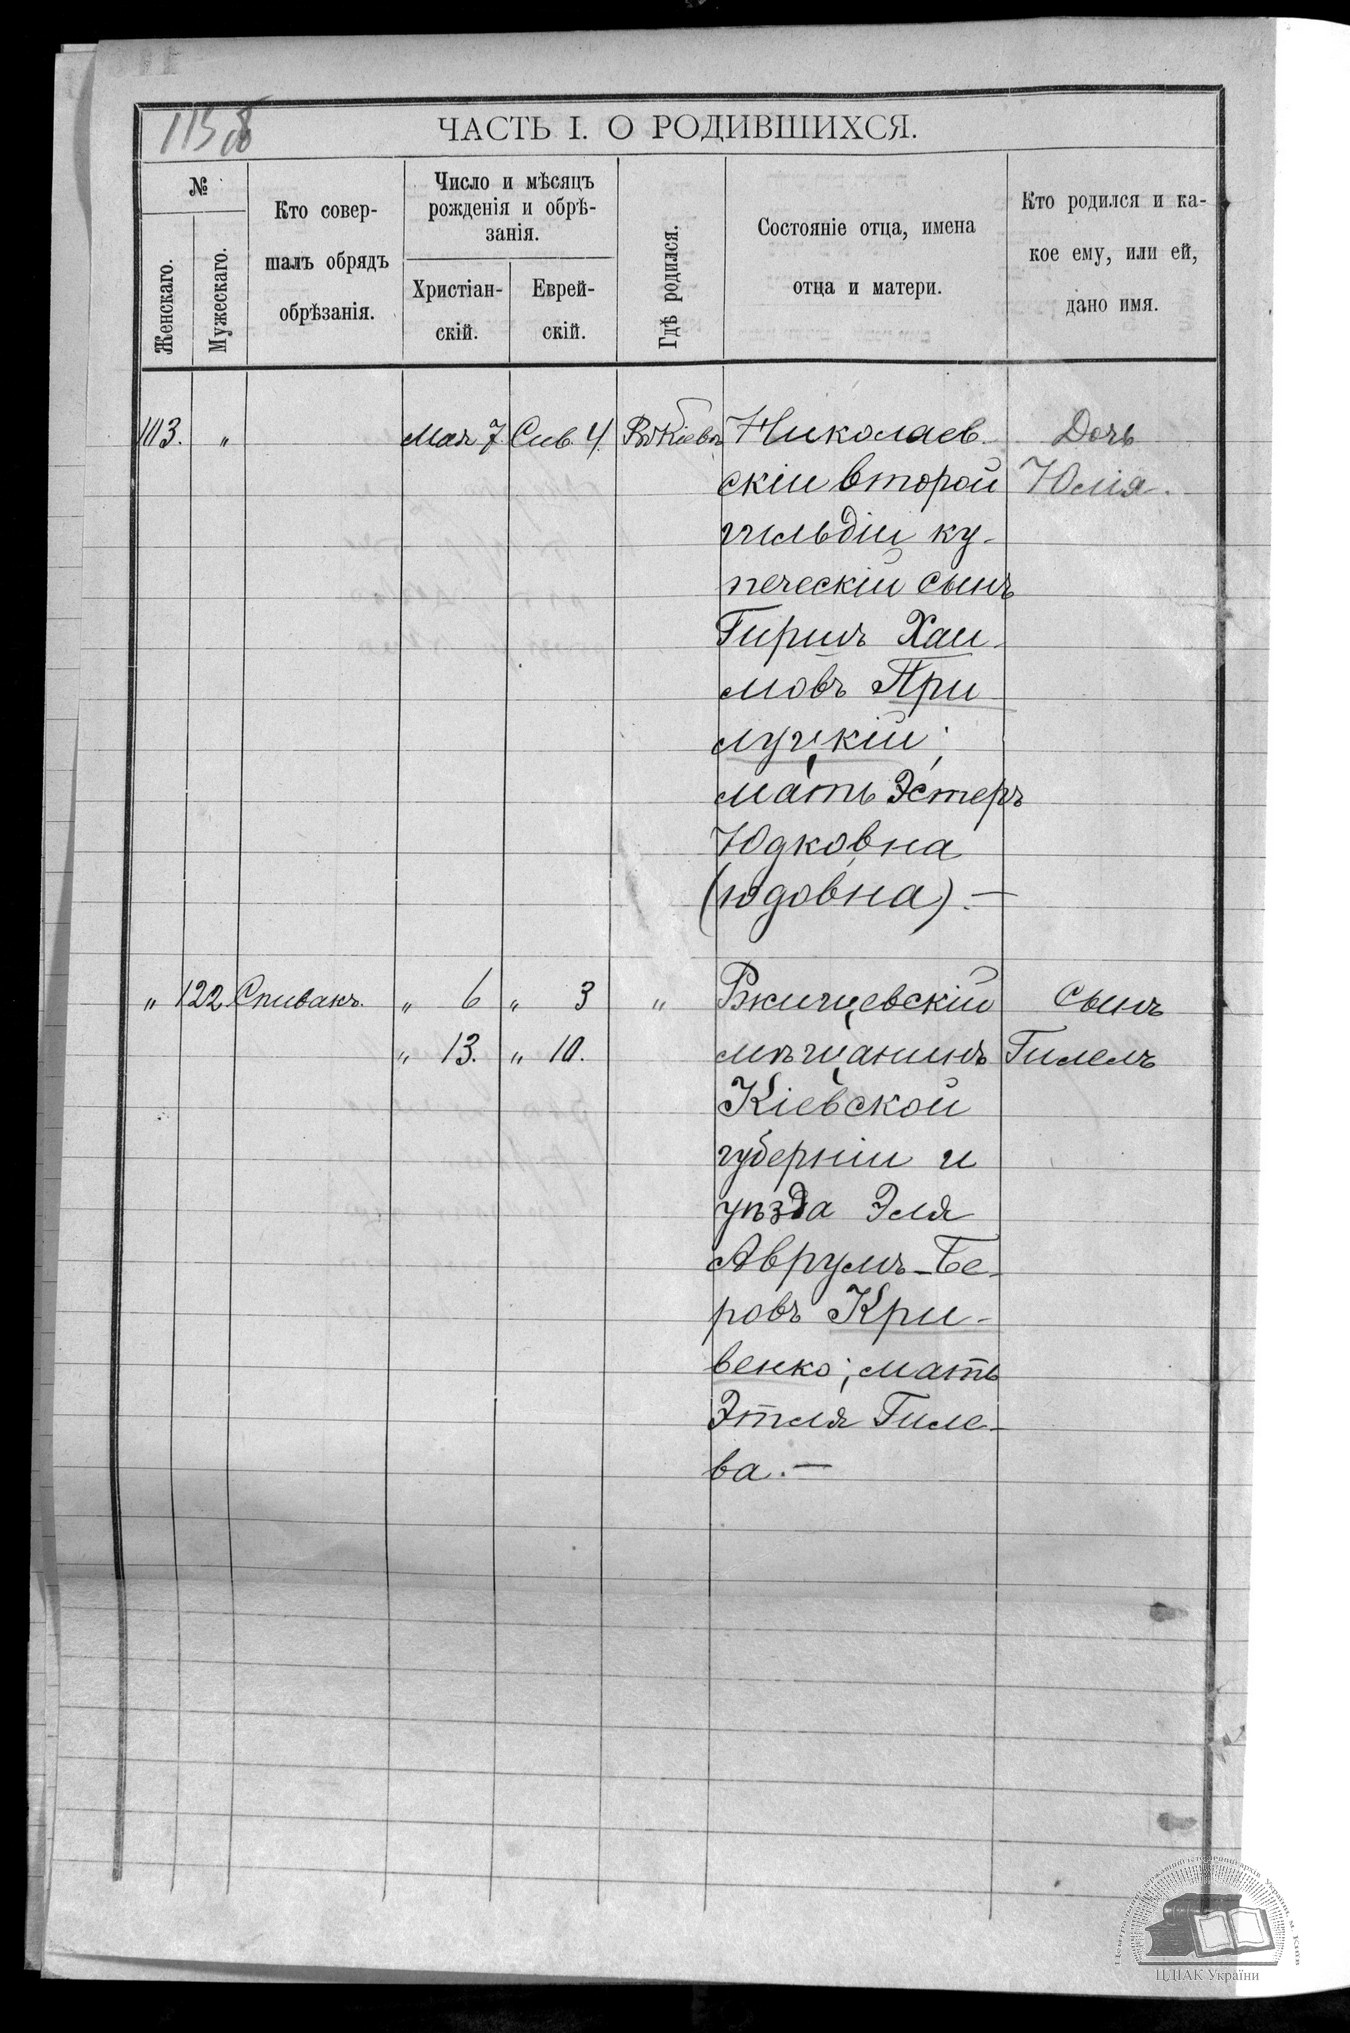 113 об
ЧАСТЬ I. О РОДИВШИХСЯ.
№
Женскаго.
Мужескаго.
Кто совер-
шалъ обрядъ
обрѣзанія.
Число и мѣсяцъ
рожденія и обрѣ-
занія.
Христіан-
скій.
Еврей-
скій.
Гдѣ родился.
Состояніе отца, имена
отца и матери.
Кто родился и ка-
кое ему, или ей,
дано имя.
103. „ Мая 7. Сив. 4. Въ Кіевѣ Николаев- Дочь
скій второй Юлія.
гильдіи ку-
печескій сынъ
Гиршъ Хаи-
мовъ При-
луцкій;
мать Эстеръ
Юдковна
(Юдовна).—
„ 122 Спивакъ. „ 6 „ 3 „ Ржищевскій Сынъ
„ 13. „ 10. мѣщанинъ Гилель
Кіевской
губерніи и
уѣзда Эля
Аврумъ-Бе-
ровъ Кри-
венко; мать
Этля Гиле-
ва.—
ЦДІАК України